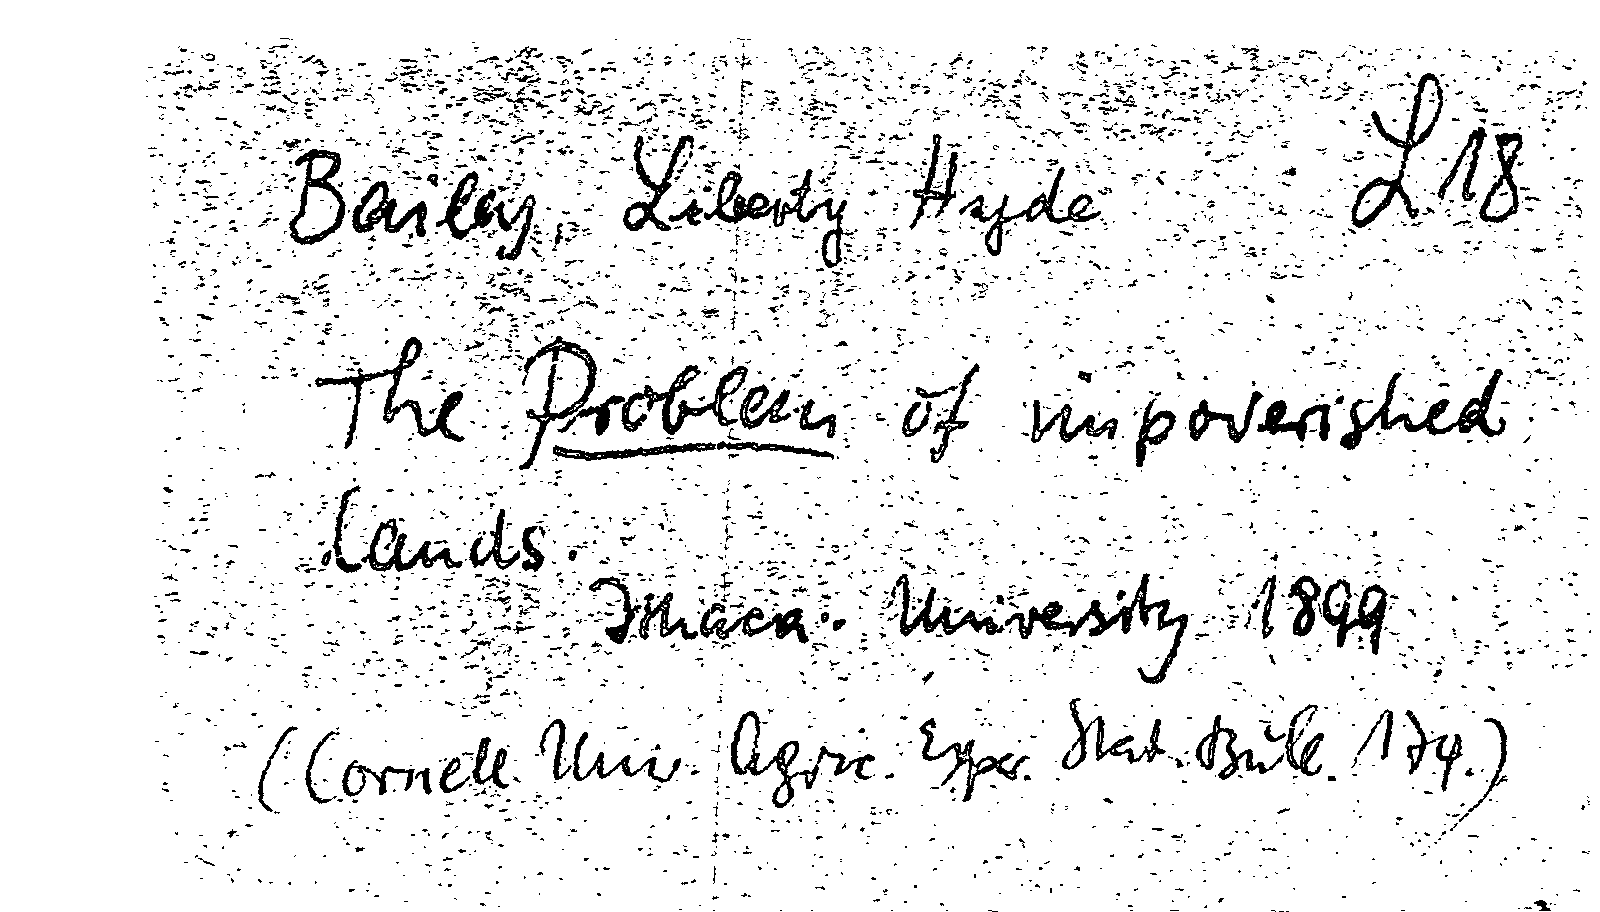 Bailey, Liberty Hyde L 18
The Problem of impoverished
lands.
Ithaca: University 1899
(Cornell Univ. Agric. Exper. Stat. Bull. 174.)